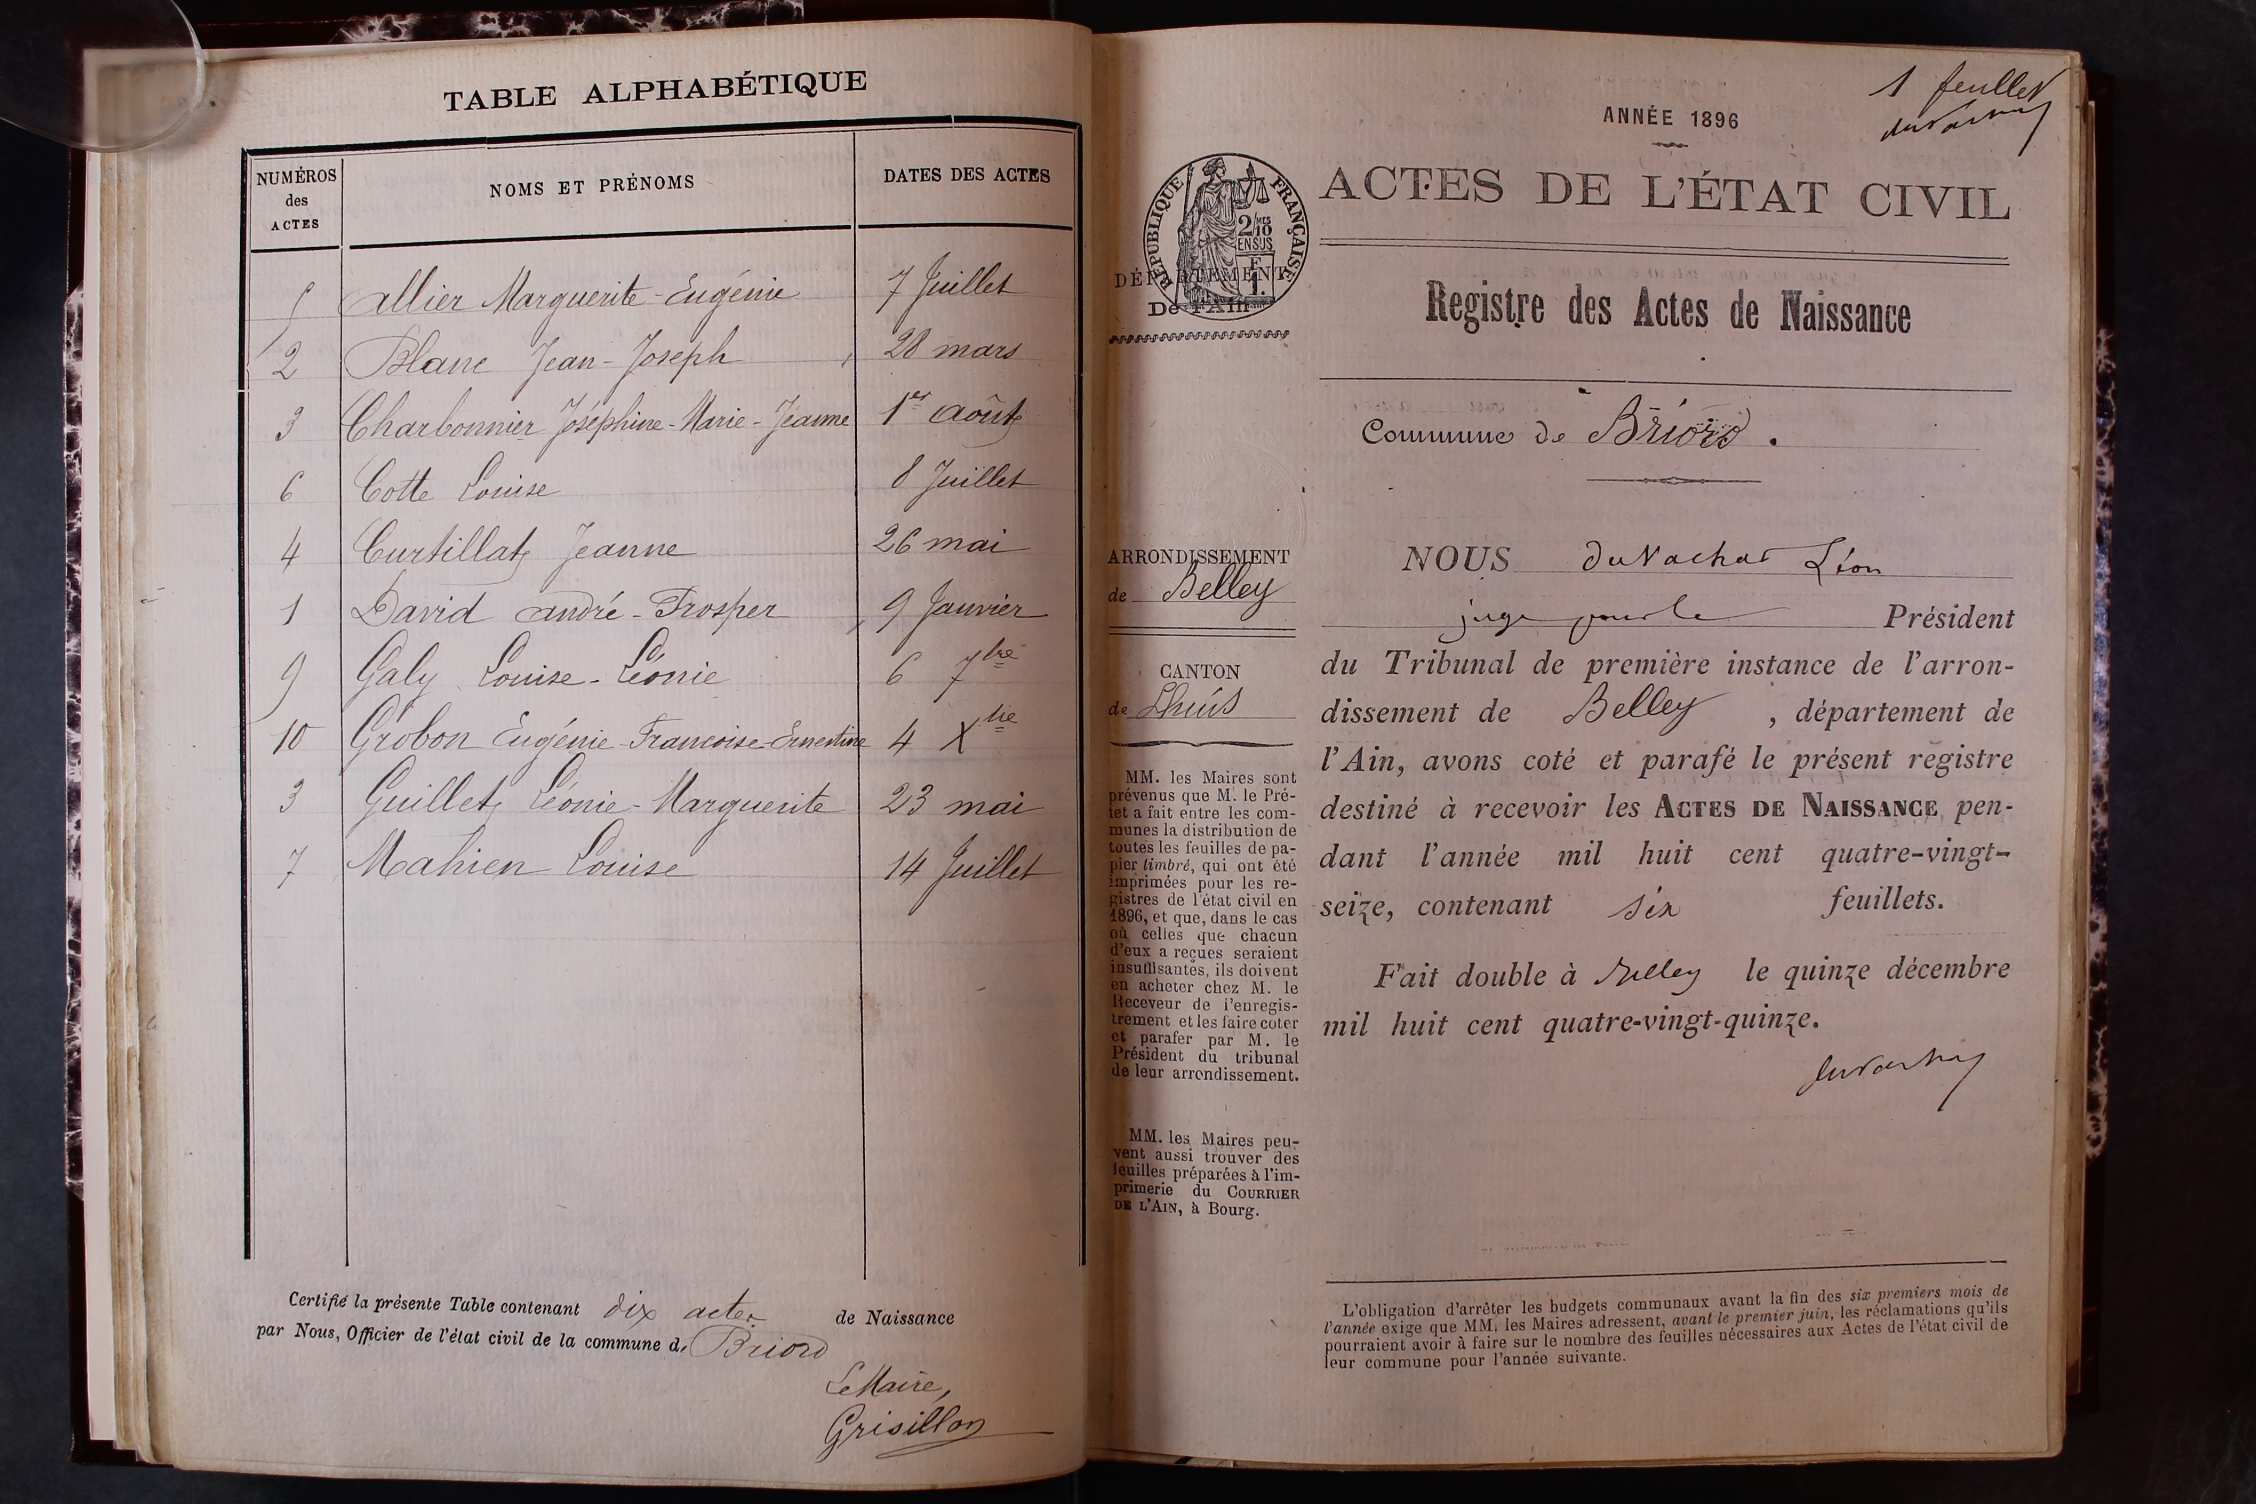 TABLE ALPHABÉTIQUE
NUMÉROS
des
ACTES
NOMS ET PRÉNOMS
DATES DES ACTES
5 Allier Marguerite-Eugénie 7 Juillet
2 Blanc Jean-Joseph 28 mars
3 Charbonnier Joséphine-Marie-Jeanne 1er août
6 Cotte Louise 8 Juillet
4 Curtillat Jeanne 26 mai
1 David André-Prosper 9 Janvier
9 Galy Louise-Léonie 6 7bre
10 Grobon Eugénie-Francoise-Ernestine 4 Xbre
3 Guillet Léonie-Marguerite 23 mai
7 Mahien Louise 14 Juillet
Certifié la présente Table contenant dix actes de Naissance
par Nous, Officier de l'état civil de la commune d. Briord
Le Maire,
Grisillon
1 feuillet
ANNÉE 1896
ACTES DE L'ÉTAT CIVIL
RÉPUBLIQUE FRANÇAISE
2/10 MES
EN SUS
F
1.
DÉPARTEMENT
De l'Ain
Registre des Actes de Naissance
Commune de Briord.
ARRONDISSEMENT
de Belley
CANTON
de Lhuis
MM. les Maires sont
prévenus que M. le Pré-
fet a fait entre les com-
munes la distribution de
toutes les feuilles de pa-
pier timbré, qui ont été
imprimées pour les re-
gistres de l'état civil en
1896, et que, dans le cas
où celles que chacun
d'eux a reçues seraient
insuffisantes, ils doivent
en acheter chez M. le
Receveur de l'enregis-
trement et les faire coter
et parafer par M. le
Président du tribunal
de leur arrondissement.
MM. les Maires peu-
vent aussi trouver des
feuilles préparées à l'im-
primerie du COURRIER
DE L'AIN, à Bourg.
NOUS duVachat Léon
juge pour le Président
du Tribunal de première instance de l'arron-
dissement de Belley, département de
l'Ain, avons coté et parafé le présent registre
destiné à recevoir les ACTES DE NAISSANCE pen-
dant l'année mil huit cent quatre-vingt-
seize, contenant six feuillets.
Fait double à Belley le quinze décembre
mil huit cent quatre-vingt-quinze.
L'obligation d'arrêter les budgets communaux avant la fin des six premiers mois de
l'année exige que MM. les Maires adressent, avant le premier juin, les réclamations qu'ils
pourraient avoir à faire sur le nombre des feuilles nécessaires aux Actes de l'état civil de
leur commune pour l'année suivante.